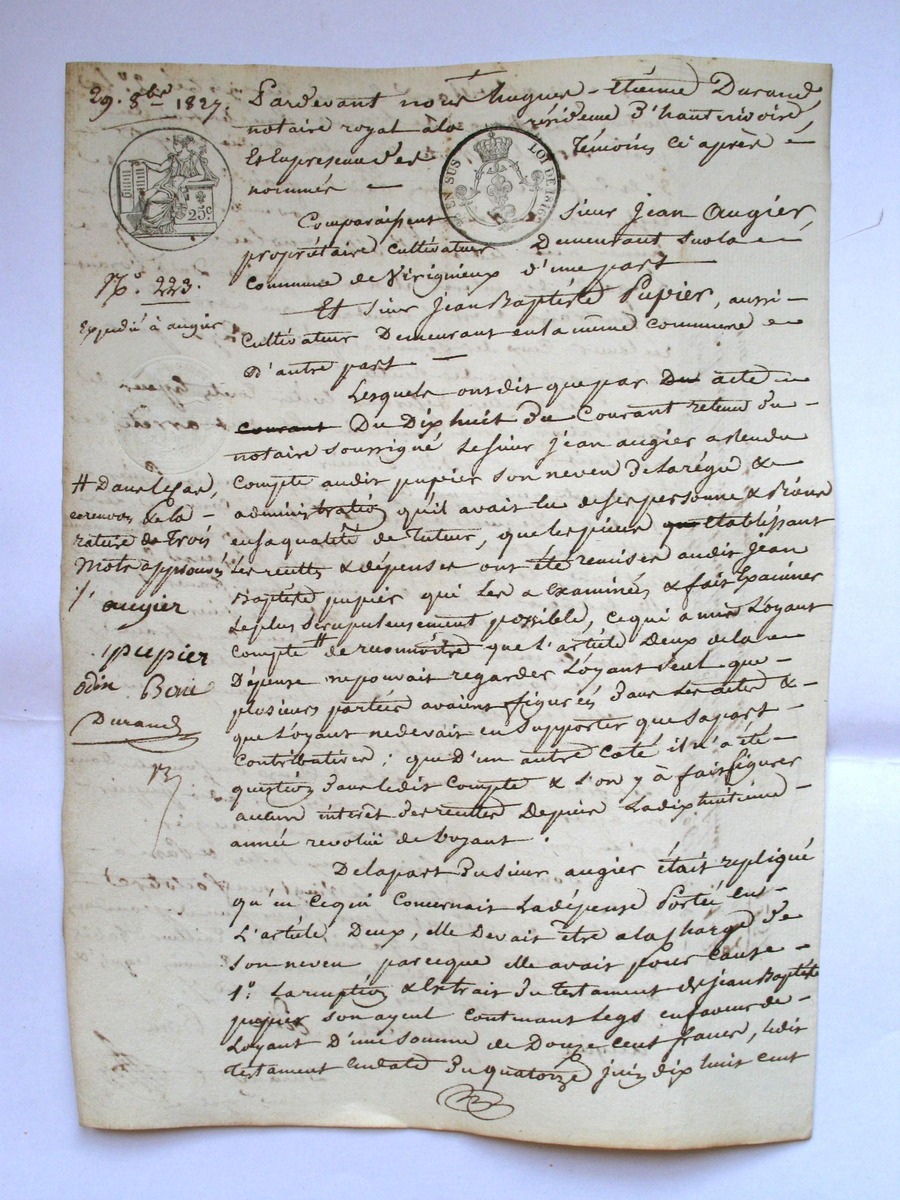 29. 8bre 1827.
25c
EN SUS
LOI DE 1816
No. 223.
Expédié à augier
Pardevant nous hugues - étienne Durand
notaire royal à la résidence d'hauterivoire
Et En presence des Témoins ci après
nommés
Comparaissent Sieur Jean Augier,
propriétaire cultivateur Demeurant sur la
Commune de Virigneux d'une part
Et Sieur Jean Baptiste Pupier, aussi
Cultivateur Demeurant en la même commune
D'autre part
Lesquels ont dit que par Du acte
courant Du Dix huit du Courant retenu du
notaire soussigné Le sieur jean augier a rendu
compte audit pupier son neveu de la régie &
administration qu'il avait eu de ses personne & biens
en sa qualité de tuteur, que les pièces que établissant
les recettes & dépenses ont été remises audit jean
Baptiste pupier qui les a Examinés & fait Examiner
le plus scrupuleusement possible, ce qui a mis L'oyant
compte # de reconnoitre que L'article Deux de la
Dépense ne pouvait regarder L'oyant seul que
plusieurs parties avaient figurées dans les actes &
que L'oyant ne devait en supporter que sa part
Contributive ; que D'un autre coté il n'a été
question dans ledit compte & L'on y à fait figurer
aucuns intérêt des recettes Depuis La dix huitième
année revolüe de L'oyant.
De la part du sieur augier était repliqué
qu'en ce qui Concernait La dépense Portée en
L'article Deux, elle Devait être a la charge de
son neveu parceque elle avait pour cause
1o. & Extrait du testament de jean Baptiste
pupier son ayeul contenant Legs en faveur de
Loyant D'une somme de Douze cent francs, ledit
testament En date du quatorze juin dix huit cent
# Dans le cas,
renvoi de la
rature de Trois
Mots approuvés
augier
pupier
odin Boni
Durand